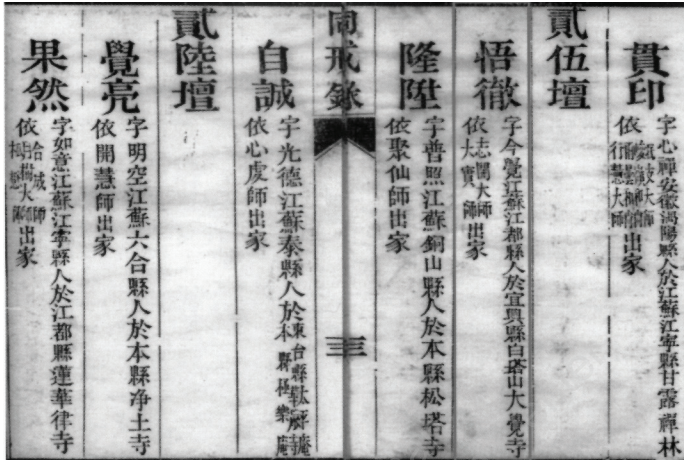 貫印
字心禪安徽渦陽縣人於江蘇江寧縣甘露禪林
依
行慧大師
出家
貳伍壇
悟徹
字今覺江蘇江都縣人於宜興縣白塔山大覺寺
依
志開大師
大寶師
出家
隆陞
字普照江蘇銅山縣人於本縣松塔寺
依聚仙師出家
同戒錄
三
自誠
字光德江蘇泰縣人於
本縣極樂庵
依心處師出家
貳陸壇
覺亮
字明空江蘇六合縣人於本縣净土寺
依開慧師出家
果然
字如意江蘇江寧縣人於江都縣蓮華律寺
依
出家